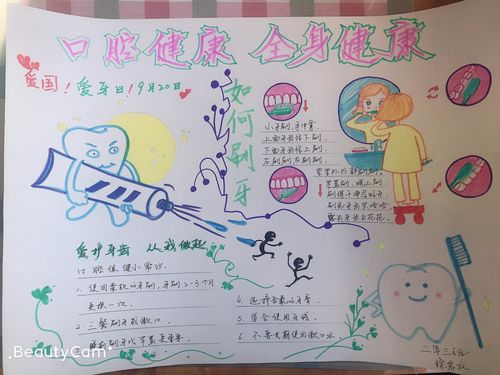 口腔健康 全身健康
爱国！爱牙日！9月20日
如何刷牙
小牙刷，手中拿
上面牙齿往下刷，
下面牙齿往上刷，
左刷刷右刷刷，
里里外外都刷刷，
早晨刷，晚上刷，
刷得干净没蛀牙，
刷完牙齿笑哈哈，
露出牙齿白花花。
爱护牙齿 从我做起
口腔保健小常识
1. 使用柔软的牙刷，牙刷2-3个月
更换一次。
2. 三餐刷牙或漱口
4. 选择含氟的牙膏
5. 适合使用牙线
6. 不要长期使用漱口水
二年三班
BeautyCam